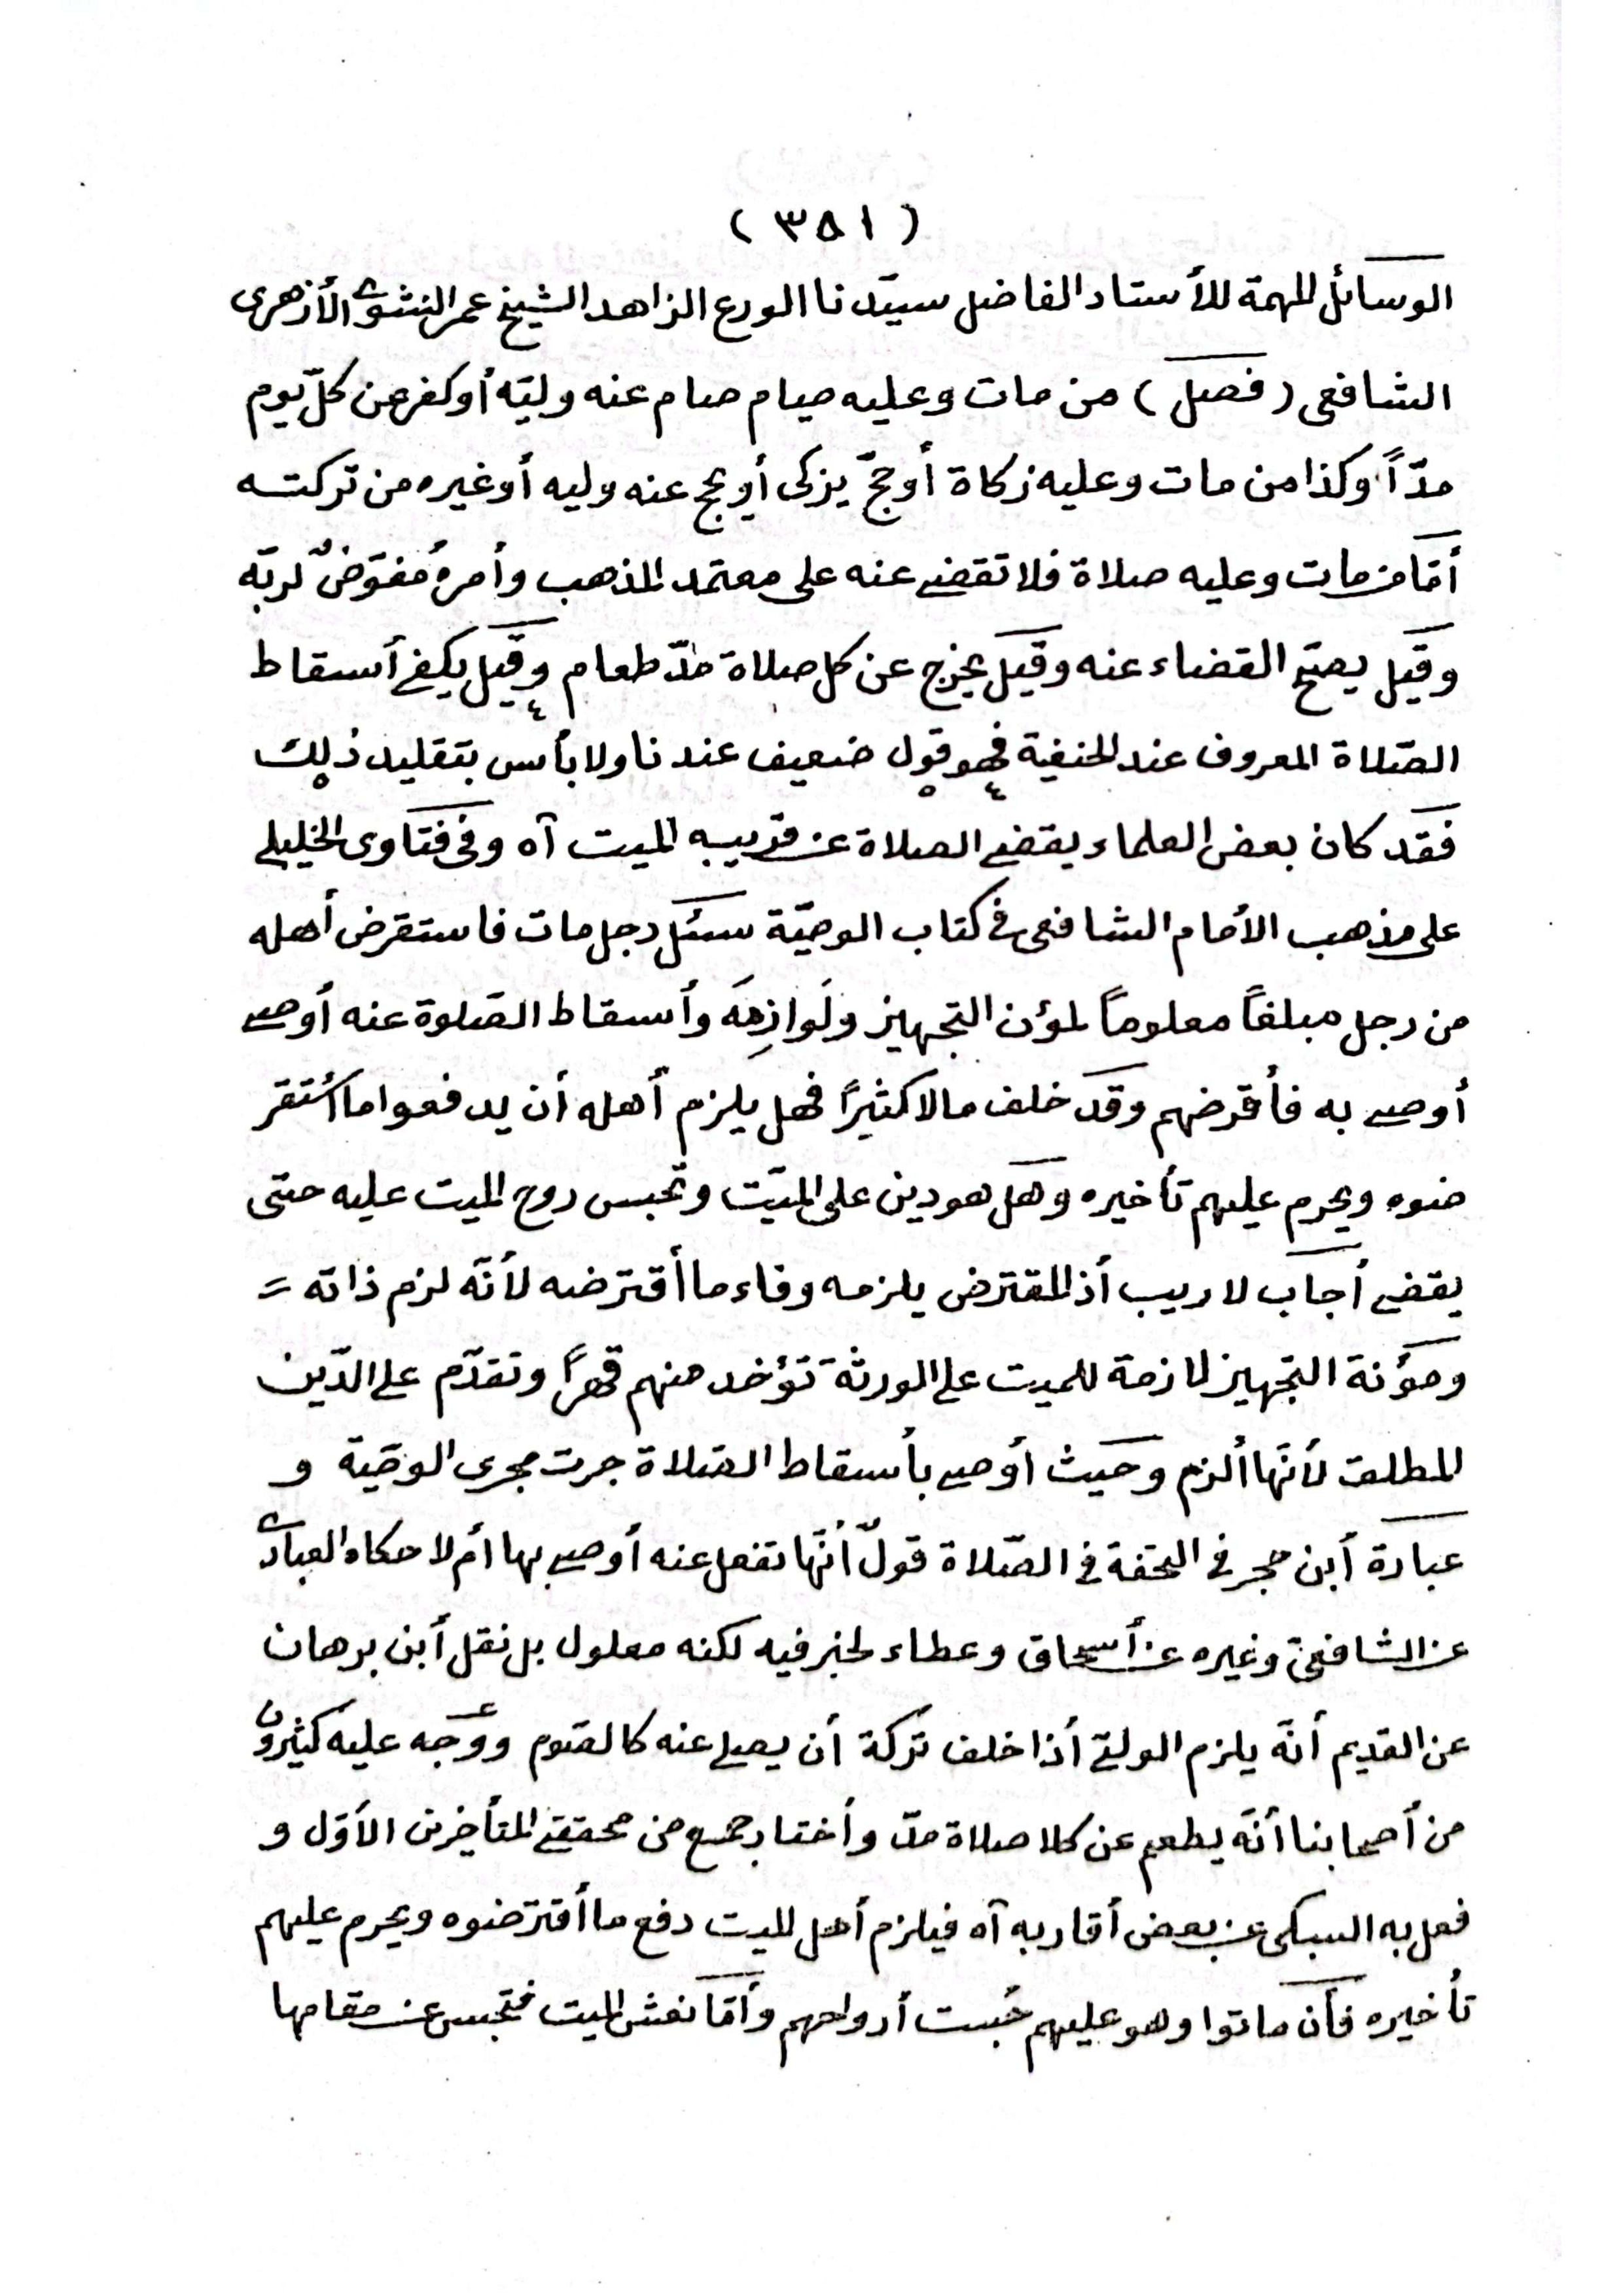 (٣٨١)
الوسائل المهمة للأستاد الفاضل سيّدنا الورع الزاهد الشيخ عمر النشوى الأزهرى
الشافعى (فصل) من مات وعليه صيام صام عنه وليّه أوكفر عن كلّ يوم
مدّاً وكذا من مات وعليه زكاة أوحجّ يزكى أويحج عنه وليه أوغيره من تركته
أمّا من مات وعليه صلاة فلا تقضى عنه على معتمد المذهب وأمرهُ مُفوّضٌ لربّه
وقيل يصحّ القضاء عنه وقيل يخرج عن كل صلاة مدّ طعام وقيل يكفى أسقاط
الصّلاة المعروف عند الحنفية فهو قول ضعيف عندنا ولا بأس بتقليد ذلك
فقد كان بعض العلماء يقضى الصلاة عن قريبه الميت آه وفى فتاوى الخليلى
على مذهب الأمام الشافعى فى كتاب الوصيّة سئل رجل مات فاستقرض أهله
من رجل مبلغاً معلوماً لمؤن التجهيز ولَوازِمِهَ وأسقاط الصّلوة عنه أوصى
أوصى به فأقرضهم وقد خلف مالا كثيرًا فهل يلزم أهله أن يدفعوا ما أستقر
ضوه ويحرم عليهم تأخيره وهل هودين على الميّت وتحبس روح الميت عليه حتى
يقضى أجاب لا ريب أن المقترض يلزمه وفاء ما أقترضه لأنّه لزم ذاته =
ومؤنة التجهيز لازمة للميت على الورثة تؤخد منهم قهرًا وتقدّم على الدّين
المطلق لأنّها ألزم وحيث أوصى بأسقاط الصّلاة جرت مجرى الوصّية و
عبارة أبن حجر فى التحفة فى الصّلاة قولٌ أنّها تفعل عنه أوصى بها أم لا حكاه العبادى
عن الشافعىّ وغيره عن أسحاق وعطاء لخبر فيه لكنه معلول بل نقل أبن برهان
عن القديم أنّه يلزم الولىّ أذا خلف تركة أن يصلى عنه كالصّوم ووجّه عليه كثيرون
من أصحابنا أنّه يطعم عن كلا صلاة مدّ وأختار جمع من محققى المتأخرين الأوّل و
فعل به السبكى عن بعض أقاربه آه فيلزم أهل الميت دفع ما أقترضوه ويحرم عليهم
تأخيره فأن ماتوا وهو عليهم حُبست أرواحهم وأمّا نفس الميت فتحبس عن مقامها